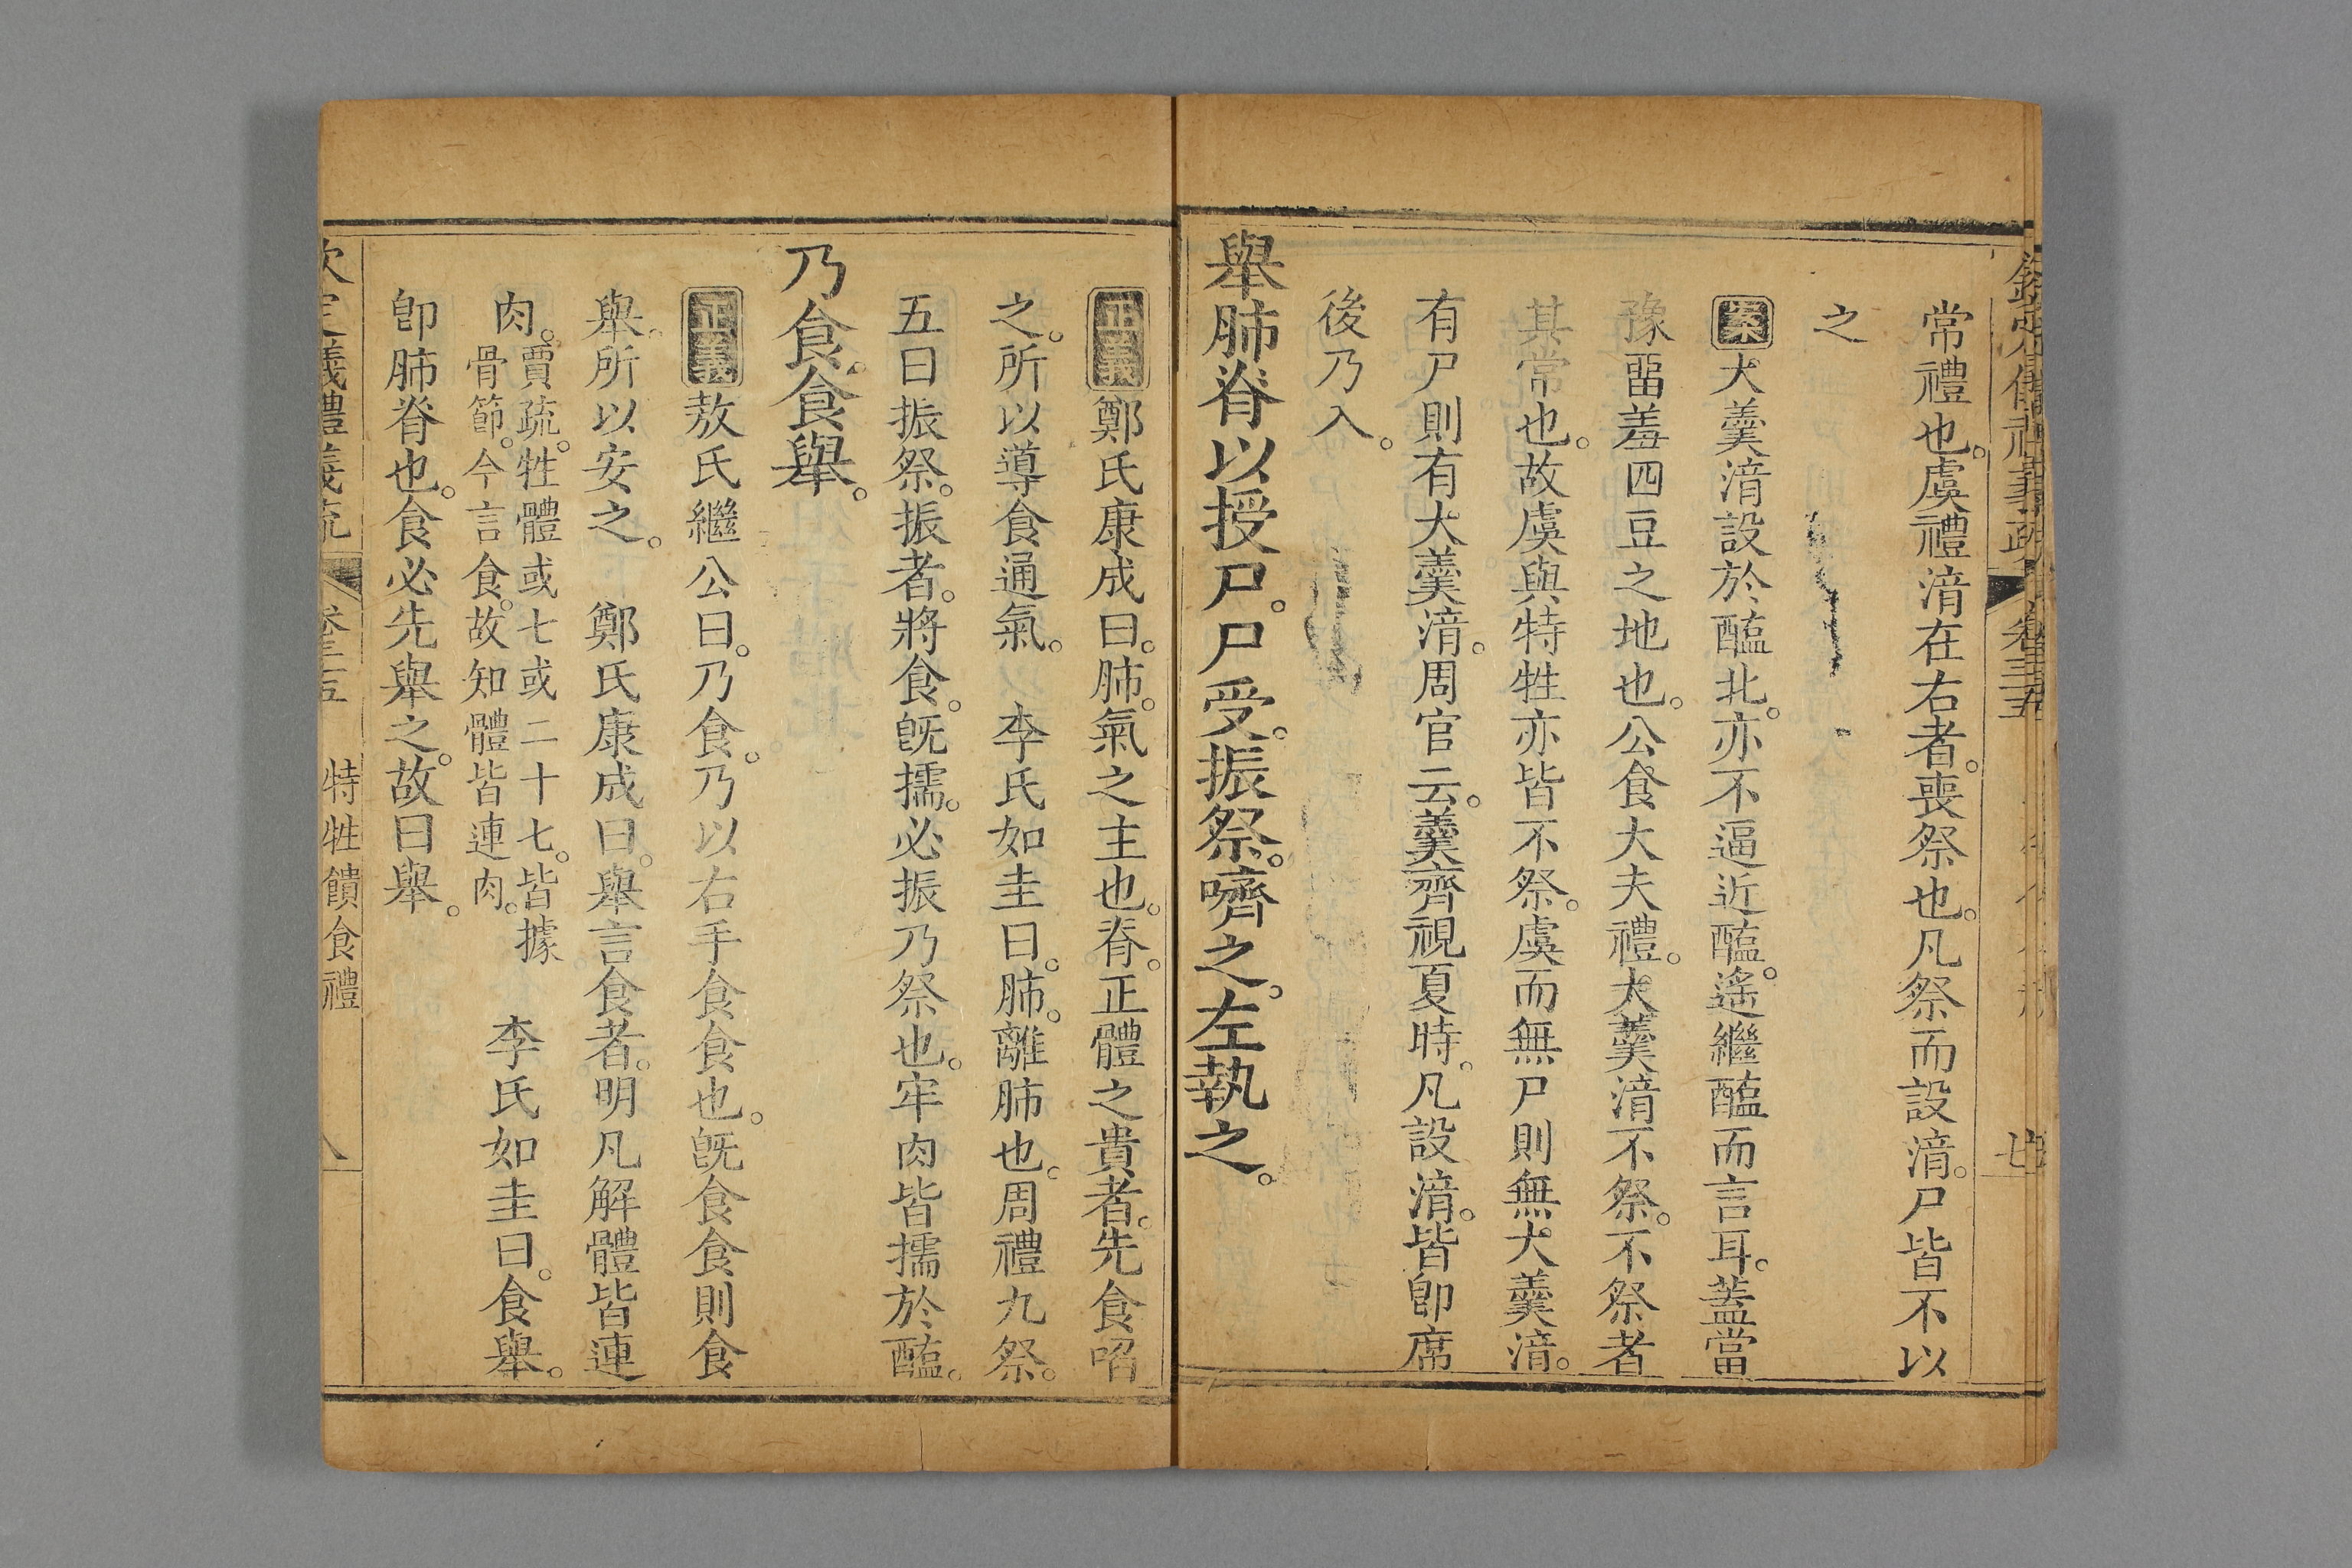 欽定儀禮義疏 卷三十五
常禮也。虞禮湇在右者。喪祭也。凡祭而設湇。尸皆不以
之
案大羹湇設於醢北。亦不逼近醢。遙繼醢而言耳。蓋當
豫畱羞四豆之地也。公食大夫禮。大羹湇不祭。不祭者
其常也。故虞與特牲亦皆不祭。虞而無尸則無大羹湇。
有尸則有大羹湇。周官云。羹齊視夏時。凡設湇。皆卽席
後乃入。
舉肺脊以授尸。尸受。振祭。嚌之。左執之。
正義鄭氏康成曰。肺。氣之主也。脊。正體之貴者。先食啗
之。所以導食通氣。 李氏如圭曰。肺。離肺也。周禮九祭。
五曰振祭。振者。將食。旣擩。必振乃祭也。牢肉皆擩於醢。
乃食。食舉。
正義敖氏繼公曰。乃食。乃以右手食食也。旣食食則食
舉。所以安之。 鄭氏康成曰。舉言食者。明凡解體皆連
肉。賈疏。牲體或七或二十七。皆據
骨節。今言食。故知體皆連肉。 李氏如圭曰。食舉。
卽肺脊也。食必先舉之。故曰舉。
欽定儀禮義疏 卷三十五 特牲饋食禮 八